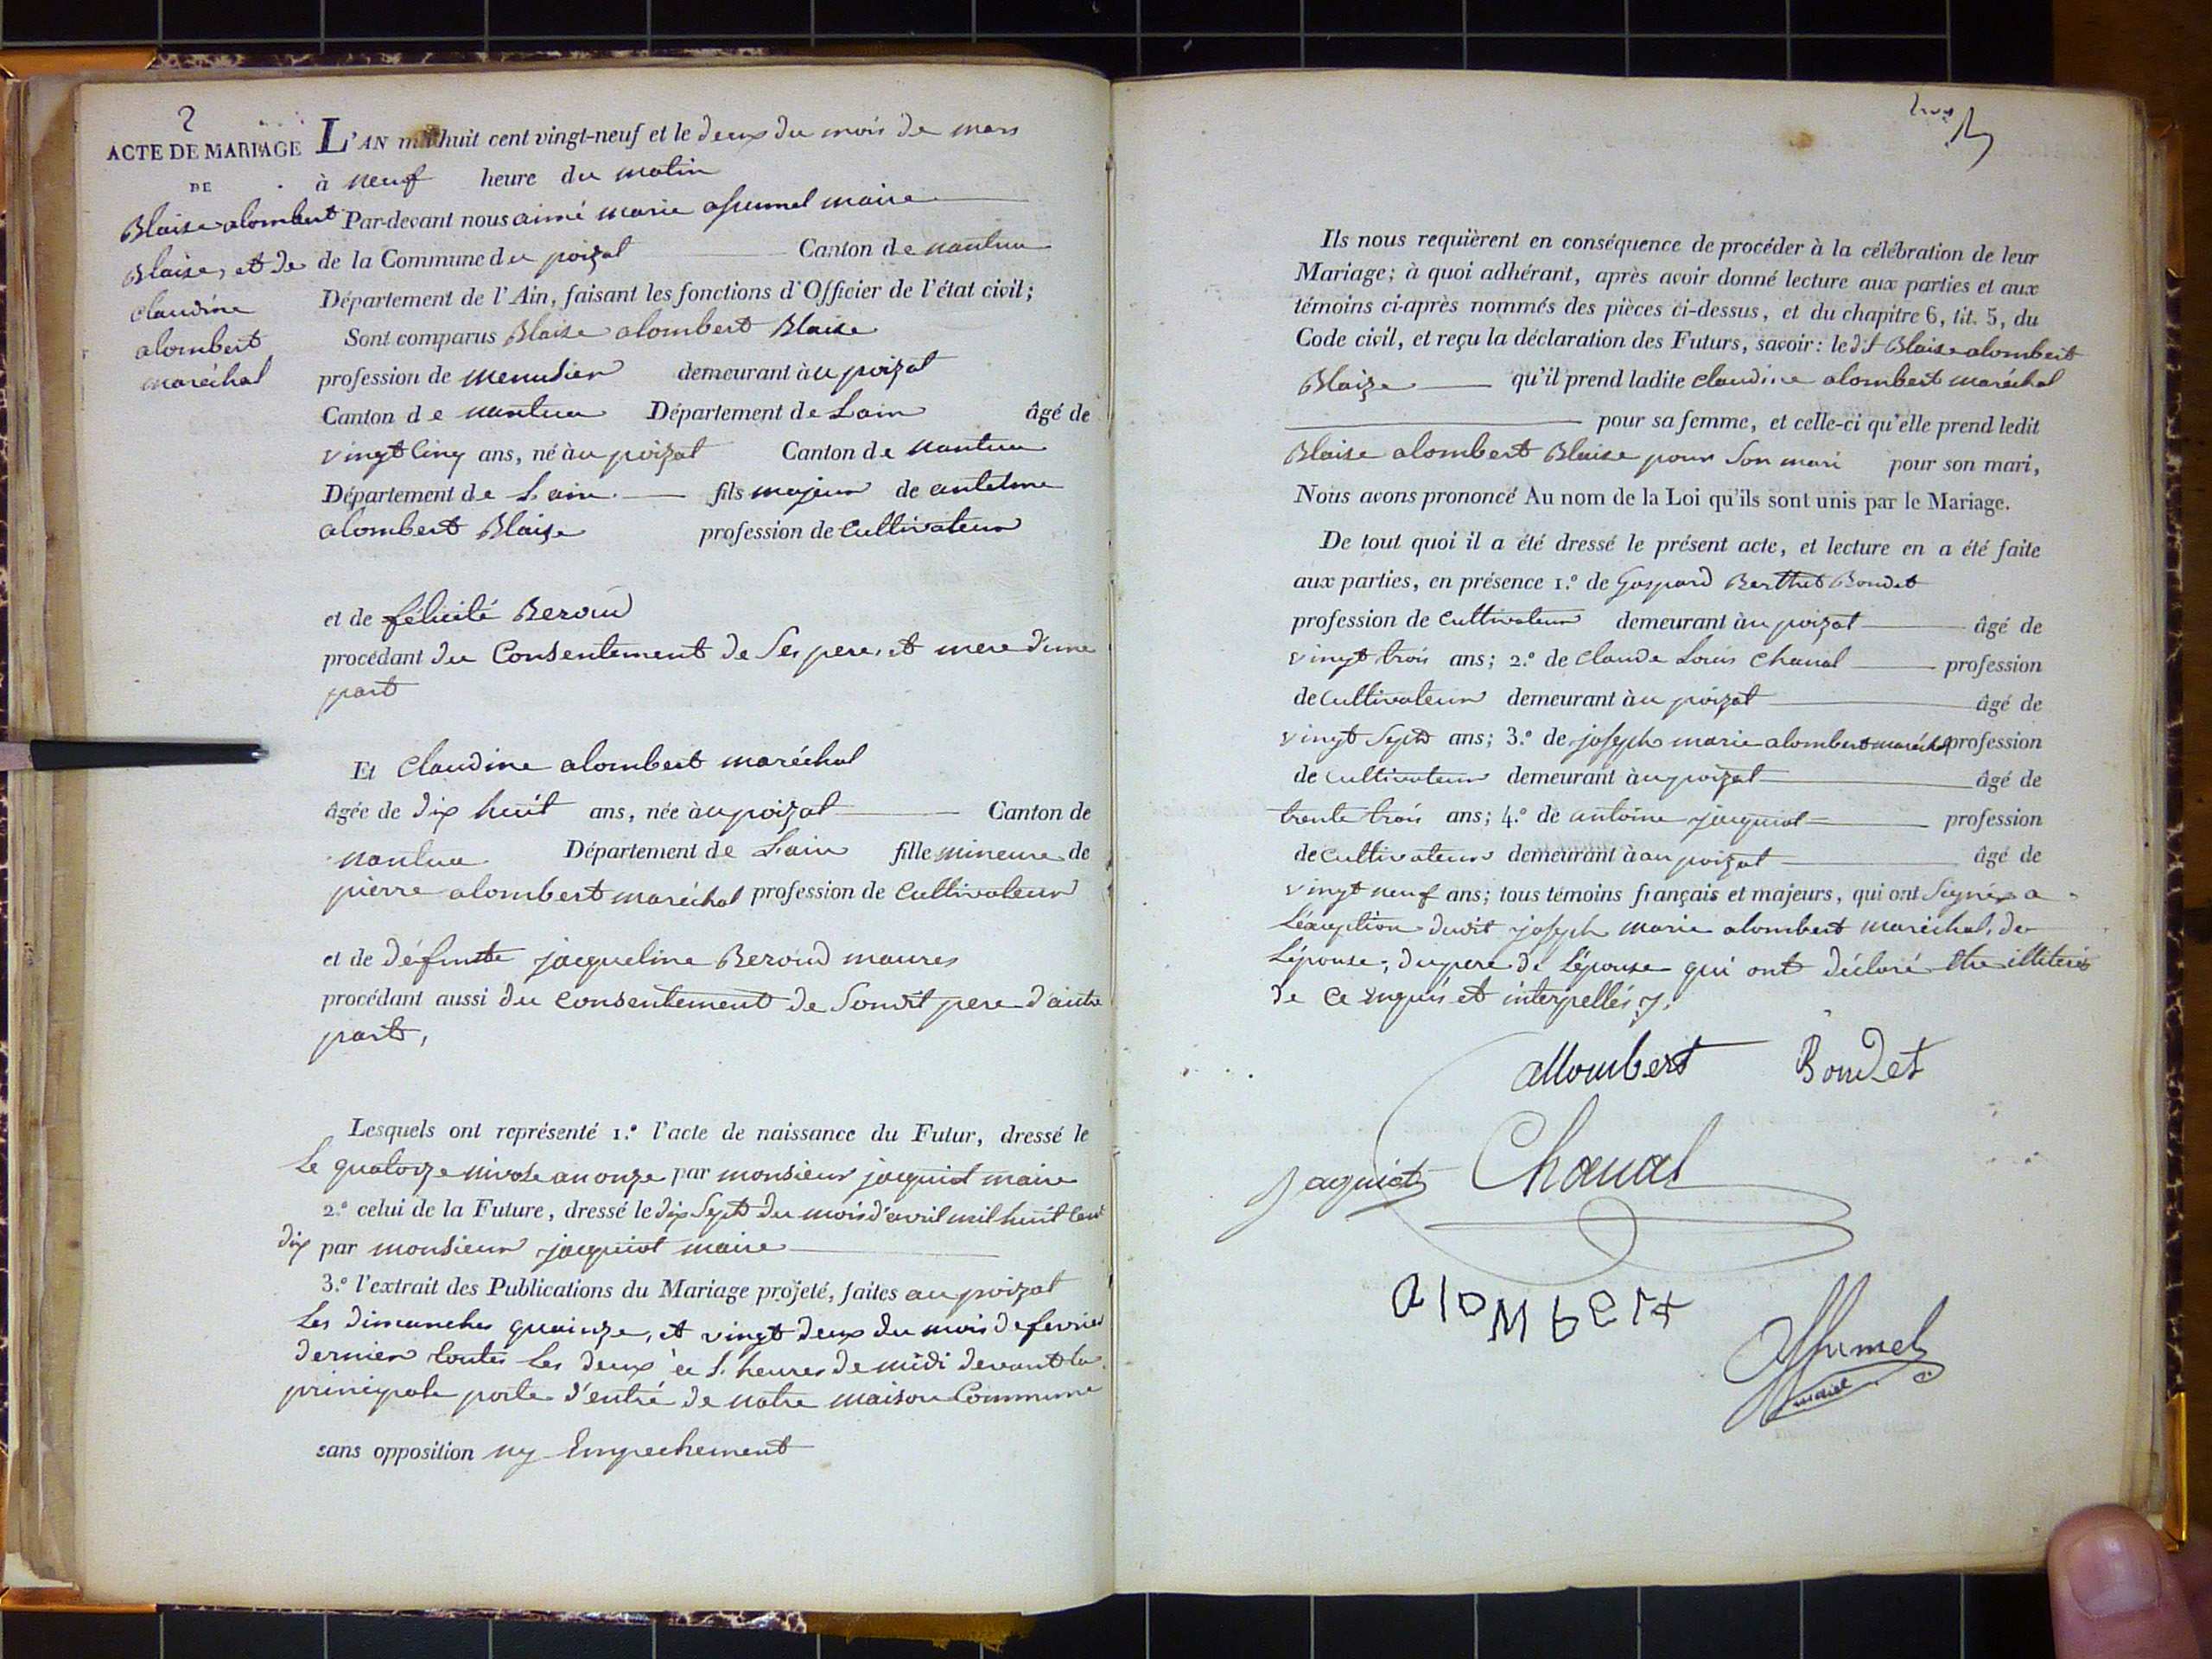 2
ACTE DE MARIAGE
DE
Blaise alombert
Blaise, et de
claudine
alombert
maréchal
L'AN mil huit cent vingt-neuf et le deux du mois de mars
à neuf heure du matin
Par-devant nous aimé marie assumel maire
de la Commune du poizat Canton de nantua
Département de l'Ain, faisant les fonctions d'Officier de l'état civil;
Sont comparus Blaise alombert Blaise
profession de menusier demeurant à u poizat
Canton de nantua Département de Lain âgé de
vingt cinq ans, né à u poizat Canton de nantua
Département de Lain fils majeur de antelme
alombert Blaise profession de cultivateur
et de félicité Beroud
procédant du Consentement de Ses pere, et mere d'une
part
Et Claudine alombert maréchal
âgée de dix huit ans, née à u poizat Canton de
nantua Département de Lain fille mineure de
pierre alombert maréchal profession de Cultivateur
et de défunte jacqueline Beroud maures
procédant aussi du consentement de Sondit pere d'autre
part,
Lesquels ont représenté 1.º l'acte de naissance du Futur, dressé le
Le quatorze nivose an onze par monsieur jacquiot maire
2.º celui de la Future, dressé le dix Sept du mois d'avril mil huit cent
dix par monsieur jacquiot maire
3.º l'extrait des Publications du Mariage projeté, faites au poizat
Les dimanches quainze, et vingt deux du mois de fevrier
dernier toutes les deux heures de midi devant la
principale porte d'entré de notre maison Commune
sans opposition ny Empechement
Ils nous requièrent en conséquence de procéder à la célébration de leur
Mariage; à quoi adhérant, après avoir donné lecture aux parties et aux
témoins ci-après nommés des pièces ci-dessus, et du chapitre 6, tit. 5, du
Code civil, et reçu la déclaration des Futurs, savoir: le dit Blaise alombert
Blaize qu'il prend ladite claudine alombert maréchal
pour sa femme, et celle-ci qu'elle prend ledit
Blaise alombert Blaise pour Son mari pour son mari,
Nous avons prononcé Au nom de la Loi qu'ils sont unis par le Mariage.
De tout quoi il a été dressé le présent acte, et lecture en a été faite
aux parties, en présence 1.º de Gaspard Berthet Bondet
profession de Cultivateur demeurant à u poizat âgé de
vingt trois ans; 2.º de Claude Louis Chaval profession
de Cultivateur demeurant à u poizat âgé de
vingt Sept ans; 3.º de joseph marie alombert maréchal profession
de Cultivateur demeurant à u poizat âgé de
trente trois ans; 4.º de antoine jacquiot profession
de Cultivateur demeurant à au poizat âgé de
vingt neuf ans; tous témoins français et majeurs, qui ont Signés a
Léxception dudit joseph marie alombert maréchal, de
Lépouse, du pere de Lépouse qui ont déclaré être illiterés
de ce enquis et interpellés
allombert Bondet
Jaquiot Chaval
alombert
Assumel
maire